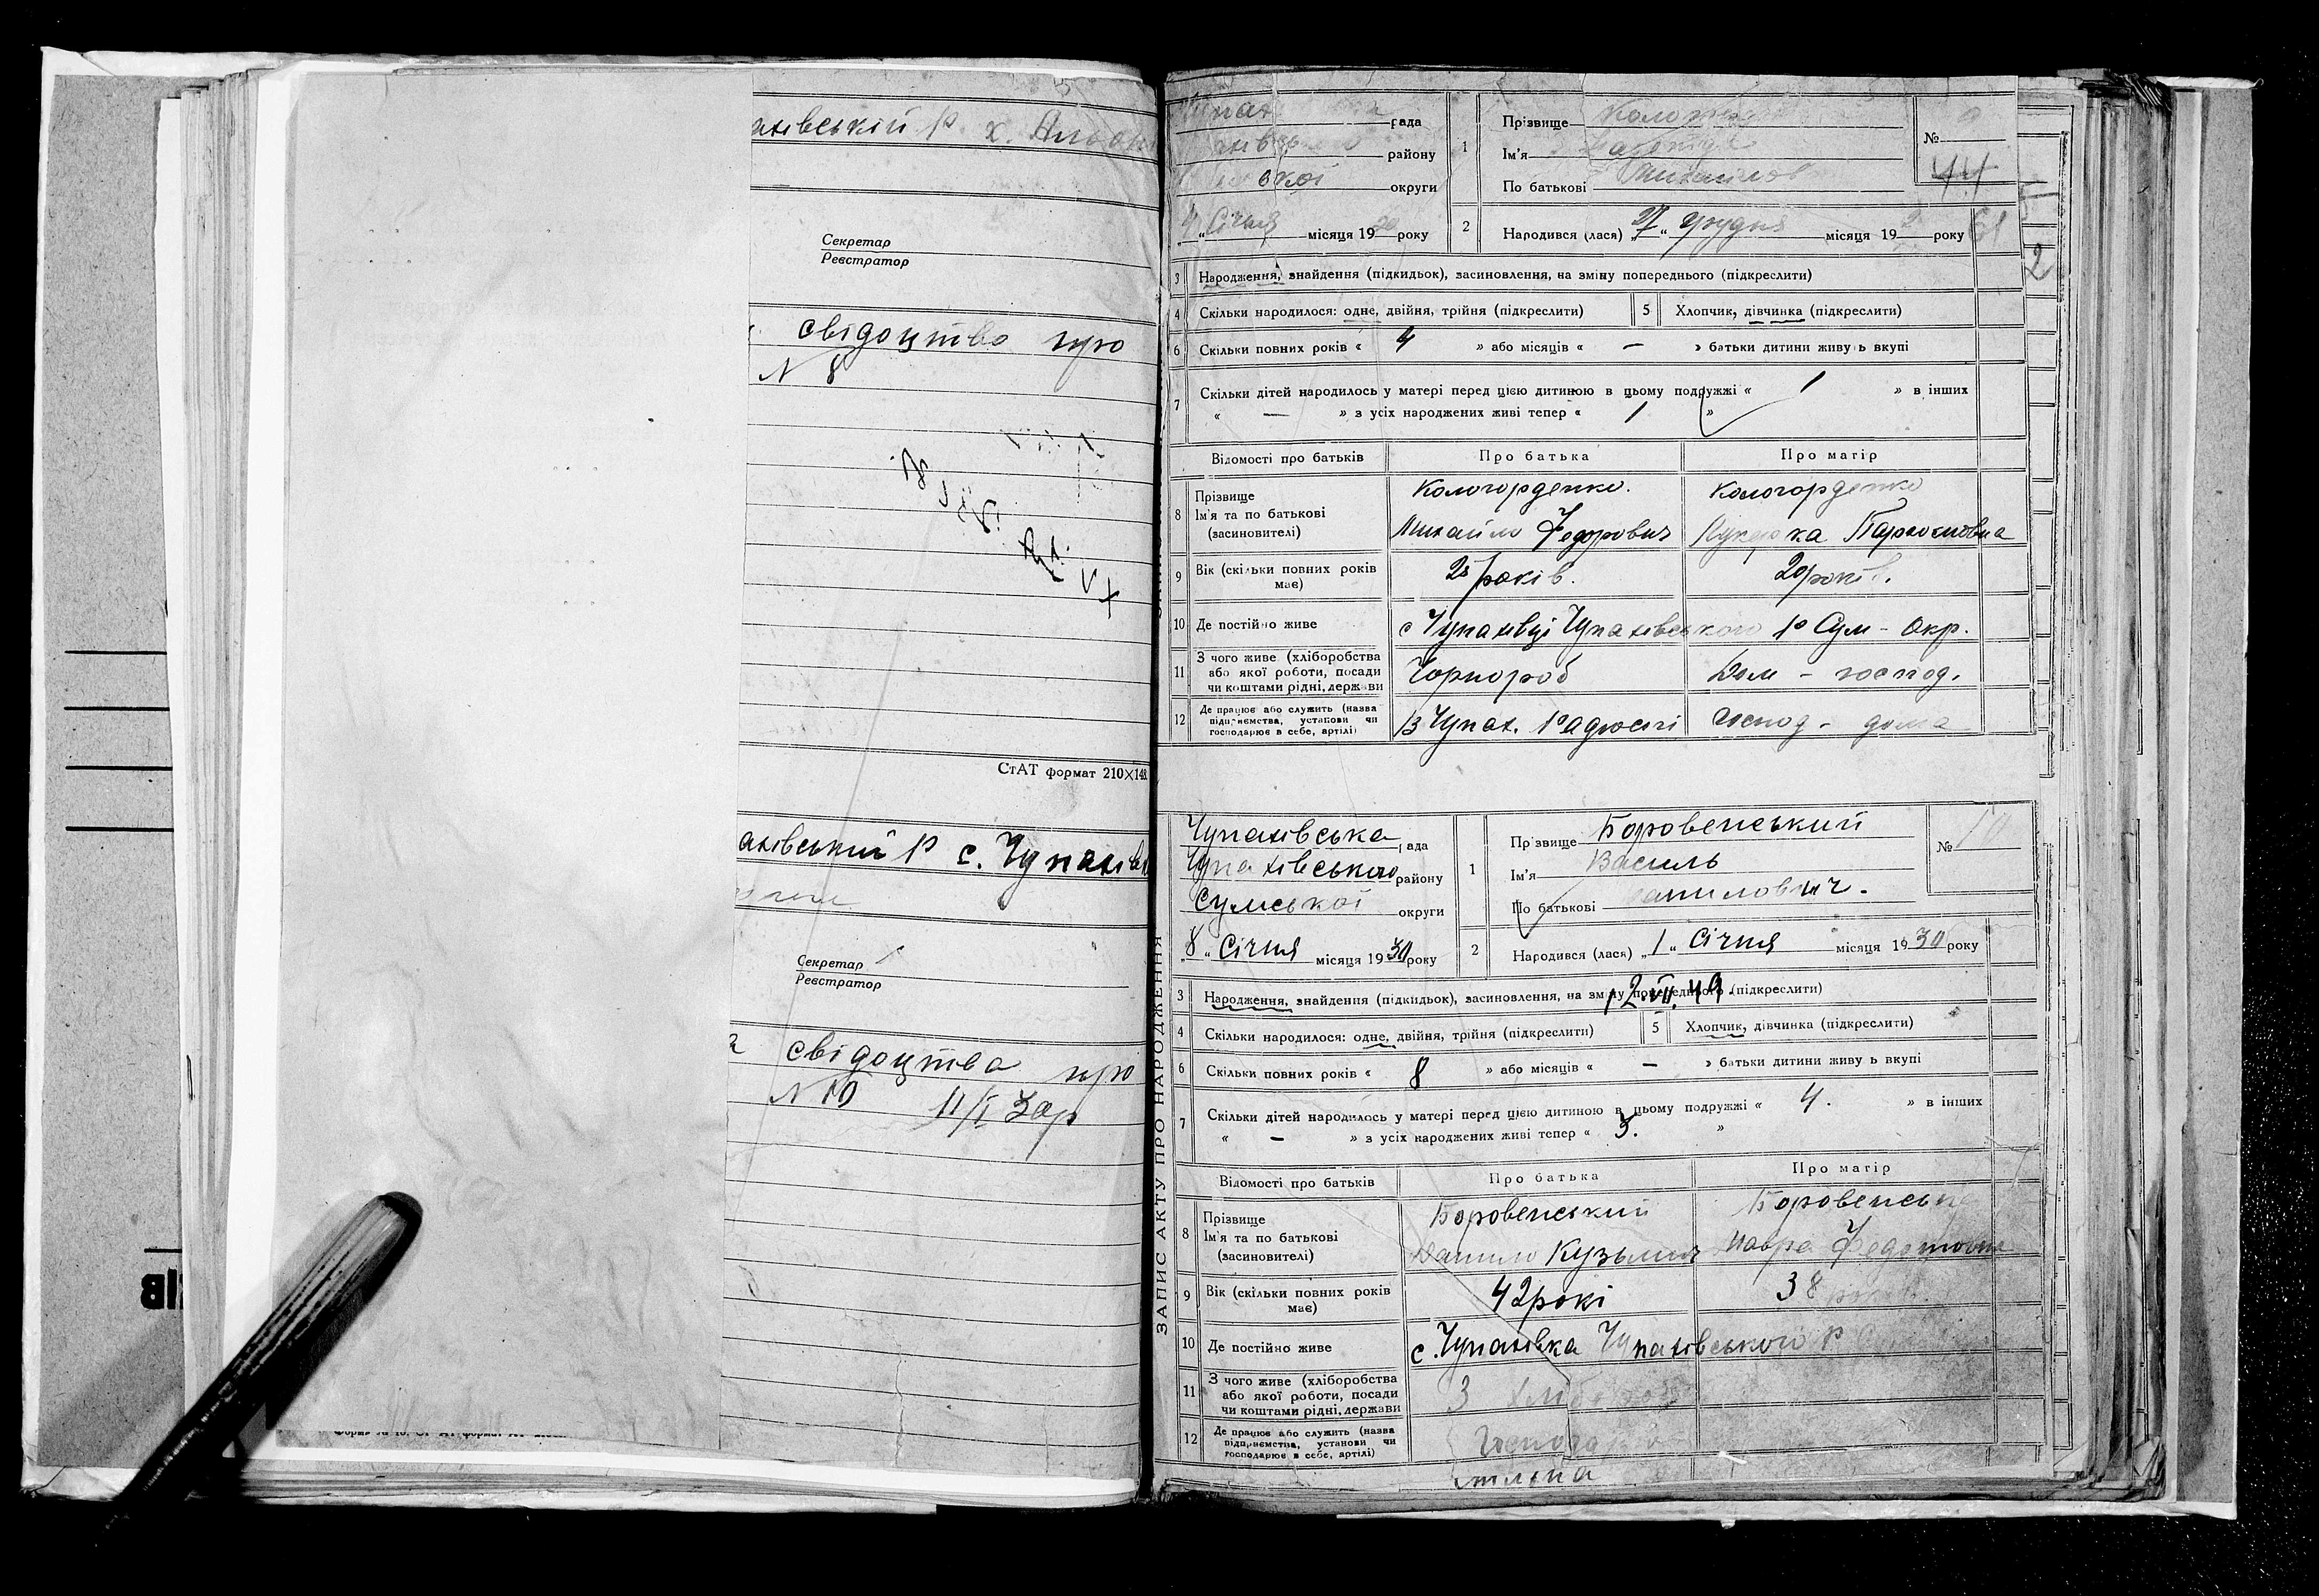 ахівській р. х.
Секретар
Реєстратор
свідоцтво про
N 8
СтАТ формат 210×148
ахівський р с. Чупахів
Секретар
Реєстратор
свідоцтва про
N 10 11/I 30р
рада
району
ської округи
4 „ Січня місяця 1930 року
1 Прізвище
Ім'я
По батькові
№
44
2 Народився (лася) „27„ грудня місяця 192 року
61
2
3 Народження, знайдення (підкидьок), засиновлення, на зміну попереднього (підкреслити)
4 Скільки народилося: одне, двійня, трійня (підкреслити) 5 Хлопчик, дівчинка (підкреслити)
6 Скільки повних років « 4 » або місяців « — » батьки дитини живуть вкупі
7 Скільки дітей народилось у матері перед цією дитиною в цьому подружжі « 1 » в інших
« — » з усіх народжених живі тепер « 1 »
Відомості про батьків Про батька Про матір
8 Прізвище
Ім'я та по батькові
(засиновителі)
Кологорденко. Кологорденко
Михайло Федорович Пархомовна
9 Вік (скільки повних років
має)
років. 20 років.
10 Де постійно живе с Чупахівці Чупахівського р Сум - Окр.
11 З чого живе (хліборобства
або якої роботи, посади
чи коштами рідні, держави
Чорнороб Дом - господ.
12 Де працює або служить (назва
підприємства, установи чи
господарює в себе, артілі)
В Чупах. Радгоспі господ - дома
ЗАПИС АКТУ ПРО НАРОДЖЕННЯ
Чупахівська рада
Чупахівського району
Сумської округи
8 „ Січня місяця 1930 року
1 Прізвище Боровенський
Ім'я Василь
По батькові Данилович.
№ 10
2 Народився (лася) „1„ Січня місяця 1930 року
3 Народження, знайдення (підкидьок), засиновлення, на зміну попереднього (підкреслити)
12.VII.49.
4 Скільки народилося: одне, двійня, трійня (підкреслити) 5 Хлопчик, дівчинка (підкреслити)
6 Скільки повних років « 8 » або місяців « — » батьки дитини живуть вкупі
7 Скільки дітей народилось у матері перед цією дитиною в цьому подружжі « 4. » в інших
« — » з усіх народжених живі тепер « 3. »
Відомості про батьків Про батька Про матір
8 Прізвище
Ім'я та по батькові
(засиновителі)
Боровенський Боровенська
Данило Кузьмич Мавра Федотовна
9 Вік (скільки повних років
має)
42 рокі 38
10 Де постійно живе с. Чупахівка Чупахівського р
11 З чого живе (хліборобства
або якої роботи, посади
чи коштами рідні, держави
З
12 Де працює або служить (назва
підприємства, установи чи
господарює в себе, артілі)